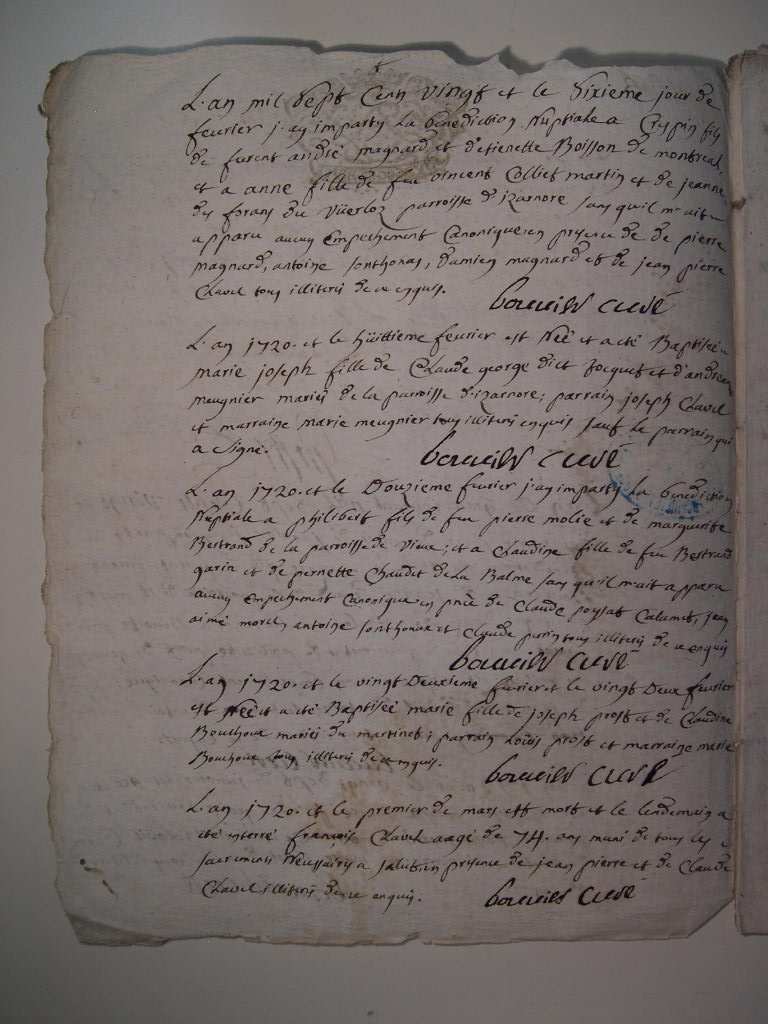 L'an mil sept cent vingt et le sixieme jour de
fevrier j'ay imparty la benediction Nuptiale a Crispin fils
de furent andré magnard et d'etienette Boisson de montreal,
et a anne fille de feu vincent Colliet martin et de jeanne
des forans du Vüerloz parroisse d'izarnore sans qu'il m'ait
apparu aucun Empechement Canonique en presence de de pierre
magnard, antoine fonthonas, damien magnard et de jean pierre
Clavel tous illiterés de ce enquis.
curé
L'an 1720. et le hüittieme fevrier est Née et a eté Baptisée
marie joseph fille de Claude george dict Jocquet et d'andrea
meugnier mariés de la parroisse d'izarnore; parrain joseph Clavel
et marraine marie meugnier tous illiterés enquis sauf le parrain qui
a signé.
curé
L'an 1720. et le Douzieme fevrier j'ay imparty la benediction
Nuptiale a philibert fils de feu pierre molie et de marguerite
Bertrand de la parroisse de Vieux; et a Claudine fille de feu Bertrand
garin et de pernette Chaudet de La Balme sans qu'il m'ait apparu
aucun Empechement Canonique en pnce de Claude poysat Calamet, jean
aimé morel, antoine fonthonas et Claude perrin tous illiterés de ce enquis
curé
L'an 1720. et le vingt Deuxieme fevrier et le vingt Deux fevrier
est Née et a eté Baptisée marie fille de joseph prost et de Claudine
Bouchoux mariés du martinet; parrain Loüis prost et marraine marie
Bouchoux tous illiterés de ce enquis.
curé
L'an 1720. et le premier de mars est mort et le lendemain a
eté enterré françois Clavel aagé de 74. ans muni de tous les
sacremens Necessaires a salut, en presence de jean pierre et de Claude
Clavel illiterés de ce enquis.
curé